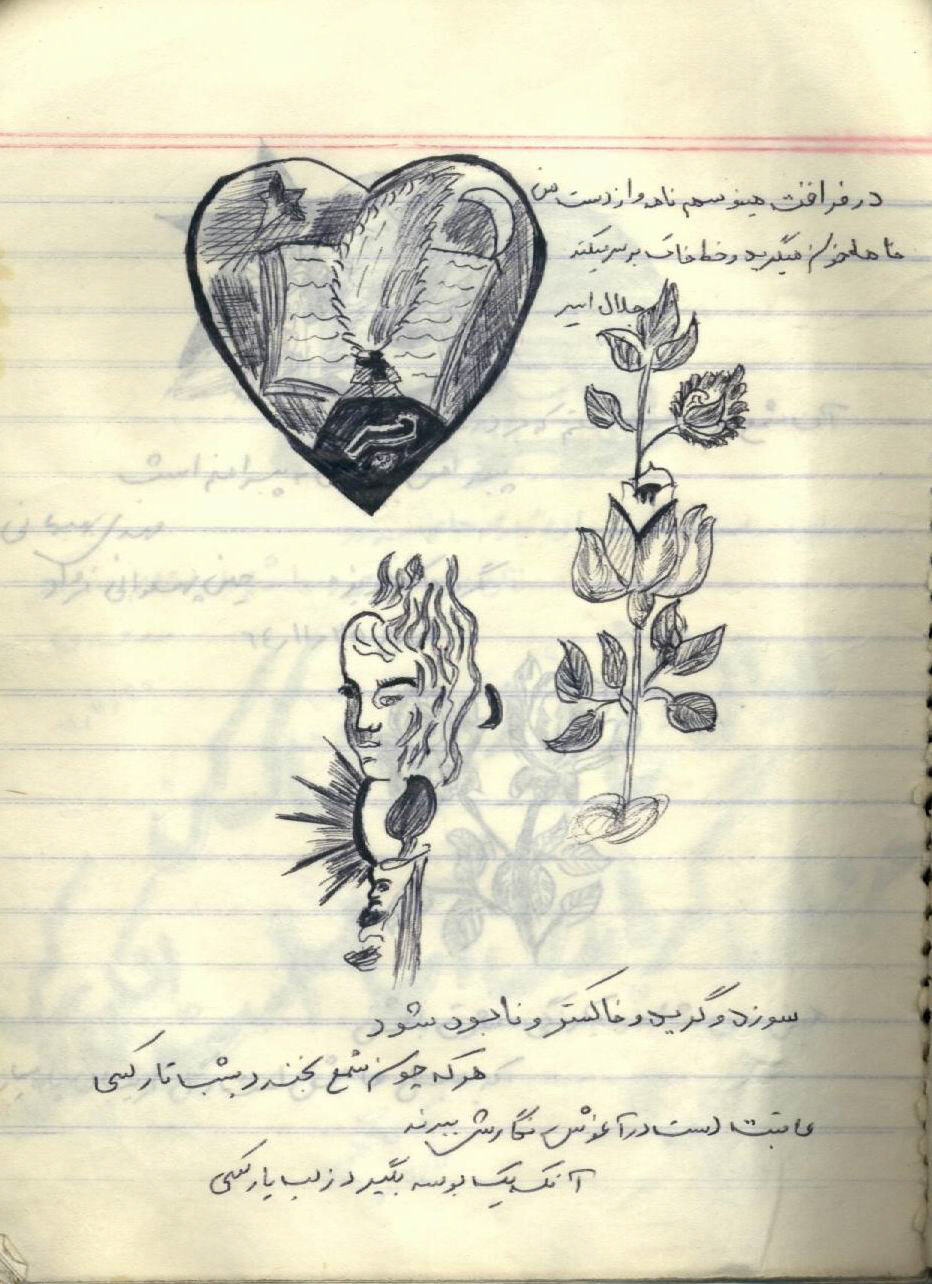 در فراقت مینویسم نامه و از دست من
خامه خون میگرید و خط خاک بر سر میکند
جلال اسیر
سوزد و گرید و خاکستر و نابود شود
هر که چون شمع بخندد بشب تار کسی
عاقبت دست در آغوش نگارش ببرند
آنکه یک بوسه بگیرد ز لب یار کسی